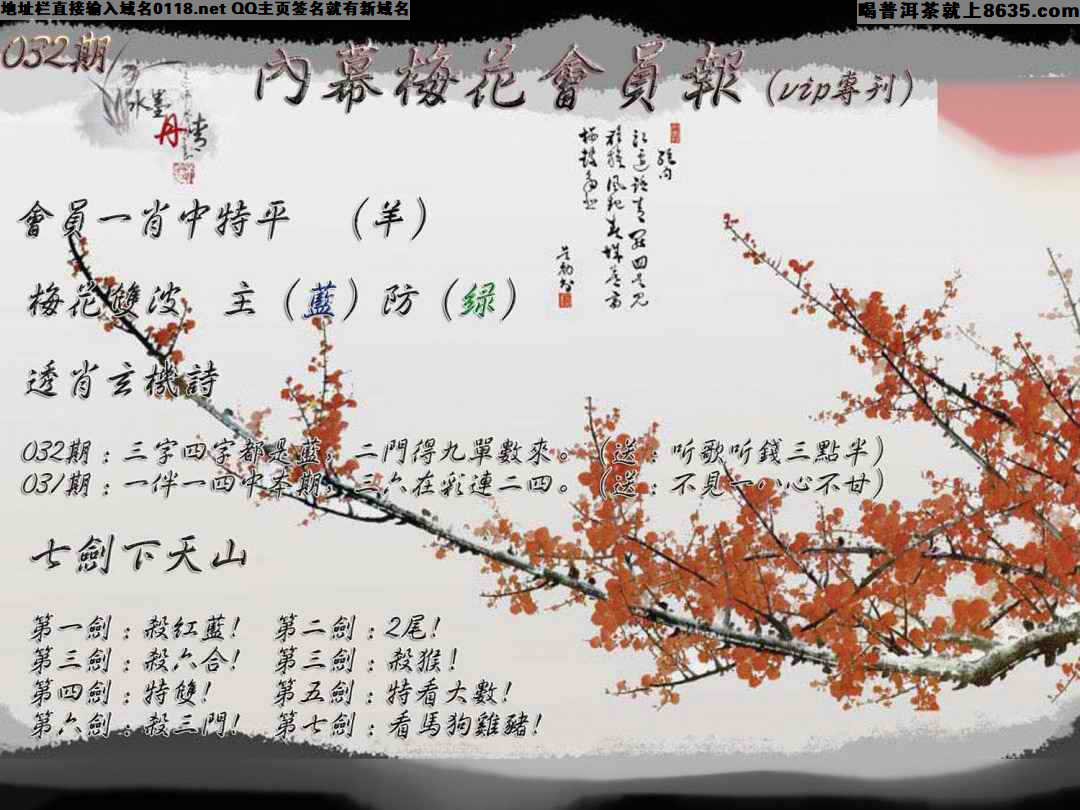 地址栏直接输入域名0118.net QQ主页签名就有新域名
喝普洱茶就上8635.com
032期
水墨丹青
內幕梅花會員報（vip專刊）
會員一肖中特平 （羊）
梅花雙波 主（藍）防（绿）
透肖玄機詩
032期：三字四字都是藍，二門得九單數來。（送：听歌听錢三點半）
031期：一伴一四中本期，三六在彩連二四。（送：不見一八心不甘）
七劍下天山
第一劍：殺红藍！ 第二劍：2尾！
第三劍：殺六合！ 第三劍：殺猴！
第四劍：特雙！ 第五劍：特看大數！
第六劍：殺三門！ 第七劍：看馬狗雞豬！